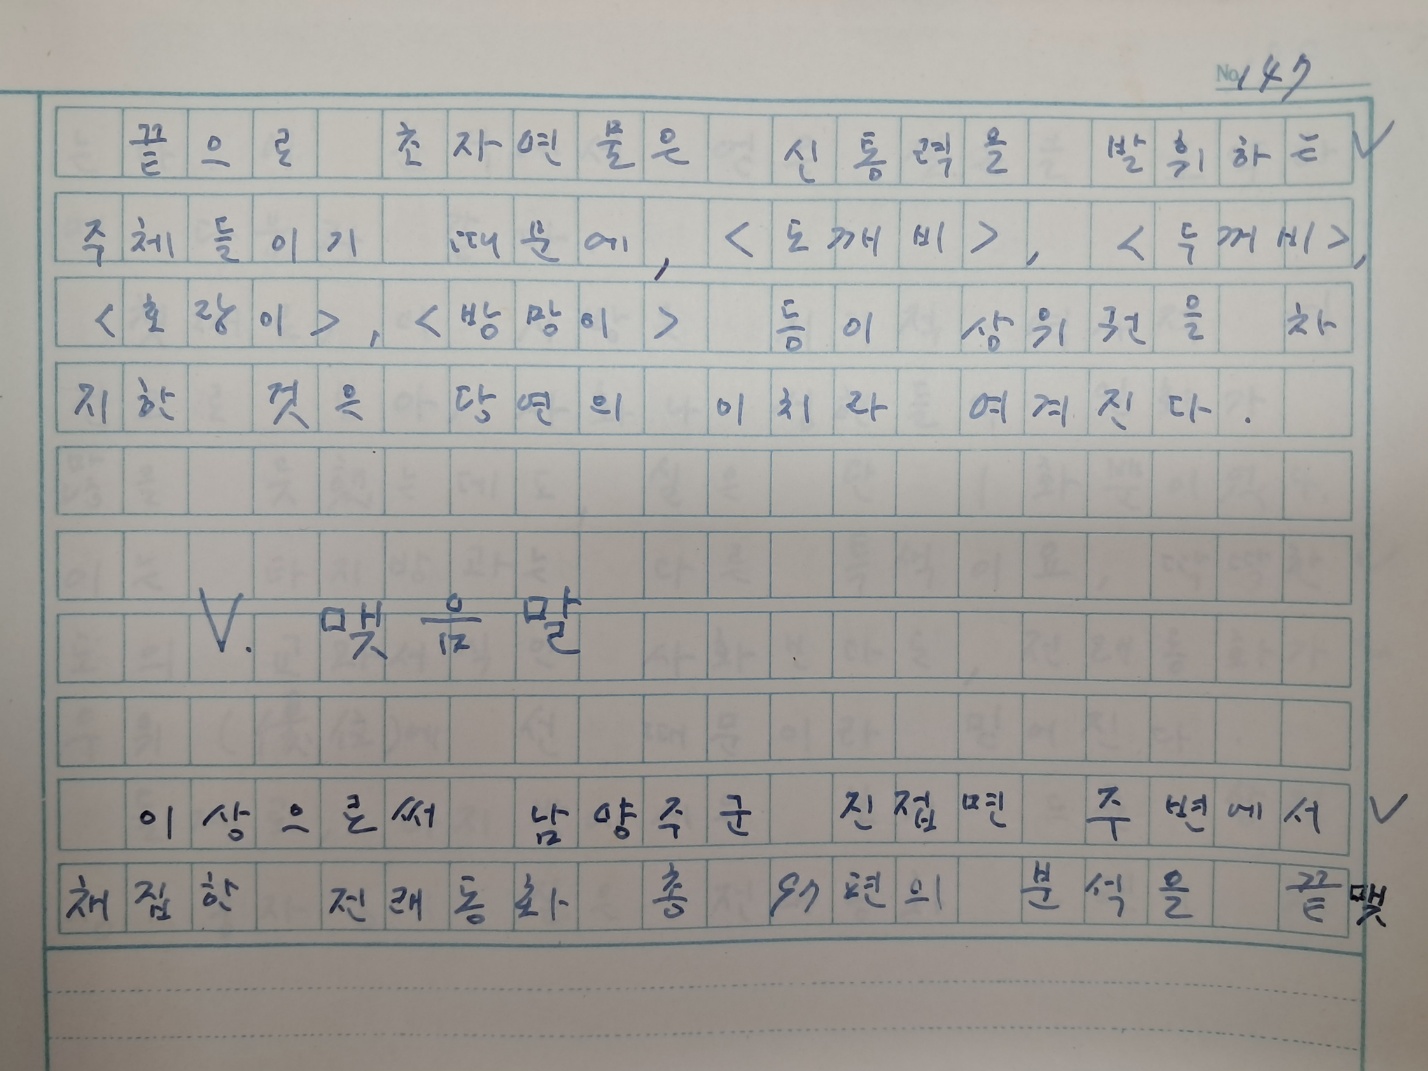 No. 147
끝으로 초자연물은 신통력을 발휘하는
주체들이기 때문에, <도깨비>, <두꺼비>,
<호랑이>, <방망이> 등이 상위권을 차
지한 것은 당연의 이치라 여겨진다.
V. 맺음말
이상으로써 남양주군 진접면 주변에서
채집한 전래동화 총 97편의 분석을 끝맺